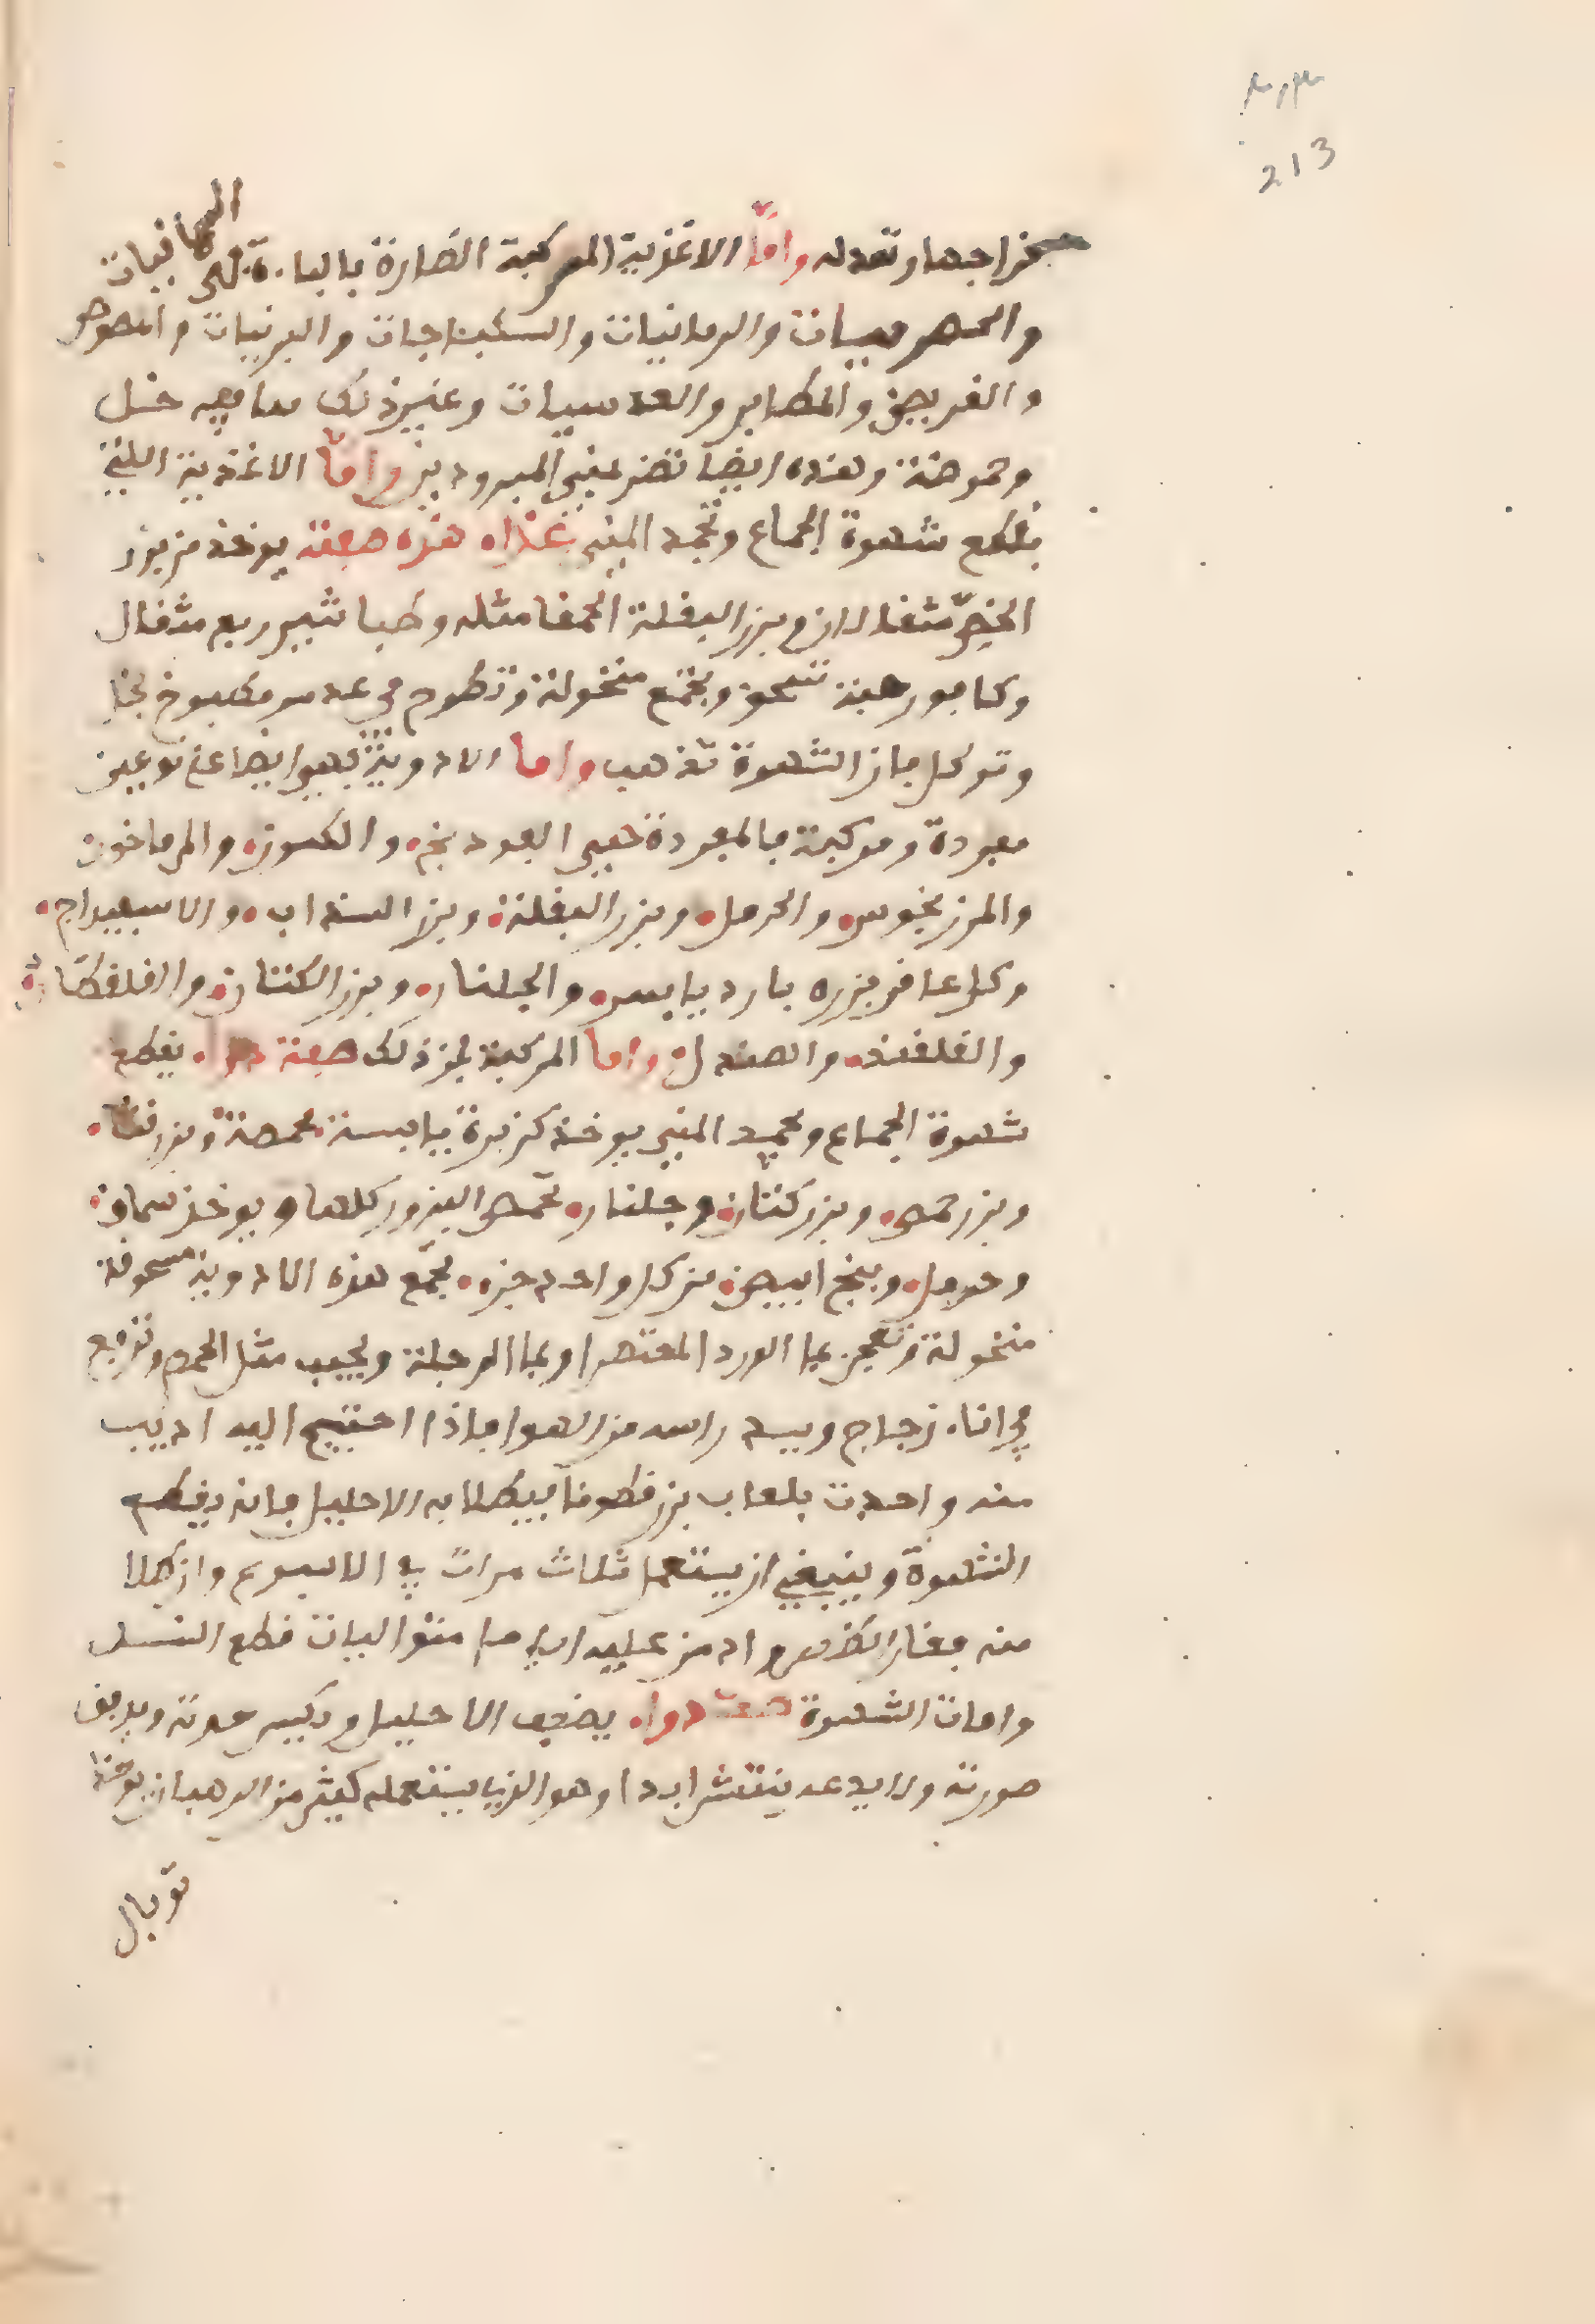 213
مزاجها وتعدله واما الاغذية المركبة الضارة بالباءة فهي السماقيات
والحصرميات والرمانيات والسكباجات والبرنيات والمصوص
والقريص والمطابر والعدسيات وغير ذلك مما فيه خل
وحموضة وهذه ايضا تضر بمني المبرودين واما الاغذية التي
تقطع شهوة الجماع وتجمد المني غذاء هذه صفته يوخذ من بزر
الخس مثقالان وبزر البقلة الحمقا مثله وطباشير ربع مثقال
وكافور حبة تسحق وتجمع منخولة وتطرح في عدس مطبوخ بخل
وتوكل فان الشهوة تذهب واما الادوية فهي ايضا على نوعين
مفردة ومركبة فالمفردة هي الفودنج والكمون والمرماخوز
والمرزنجوش والحرمل وبزر البقلة وبزر السذاب والاسبيداج
وكل عاقر بزره بارد يابس والجلنار وبزر الكتان والقلقطار
والقلقند والصندل واما المركبة فمن ذلك صفة دواء يقطع
شهوة الجماع ويجمد المني يوخذ كزبرة يابسة محمصة وبزر قثاء
وبزر خس وبزر كتان وجلنار تحمص البزور كلها ويوخذ سماق
وحرمل وبنج ابيض من كل واحد جزء تجمع هذه الادوية مسحوقة
منخولة وتعجن بما الورد المعتصر او بما الرجلة ويحبب مثل الحمص وترفع
في اناء زجاج ويسد راسه من الهوا فاذا احتيج اليه اديب
منه واحدة بلعاب بزر قطونا ويطلا به الاحليل فانه يقطع
الشهوة وينبغي ان يستعمل ثلاث مرات في الاسبوع وان طلا
منه فقار الظهر وادمن عليه اياما متواليات قطع النسل
وامات الشهوة صفة دواء يضعف الاحليل ويكسر حدته ويدبف
صورته ولا يدعه ينتشر ابدا وهو الذي يستعمله كثير من الرهبان يوخذ
توبال